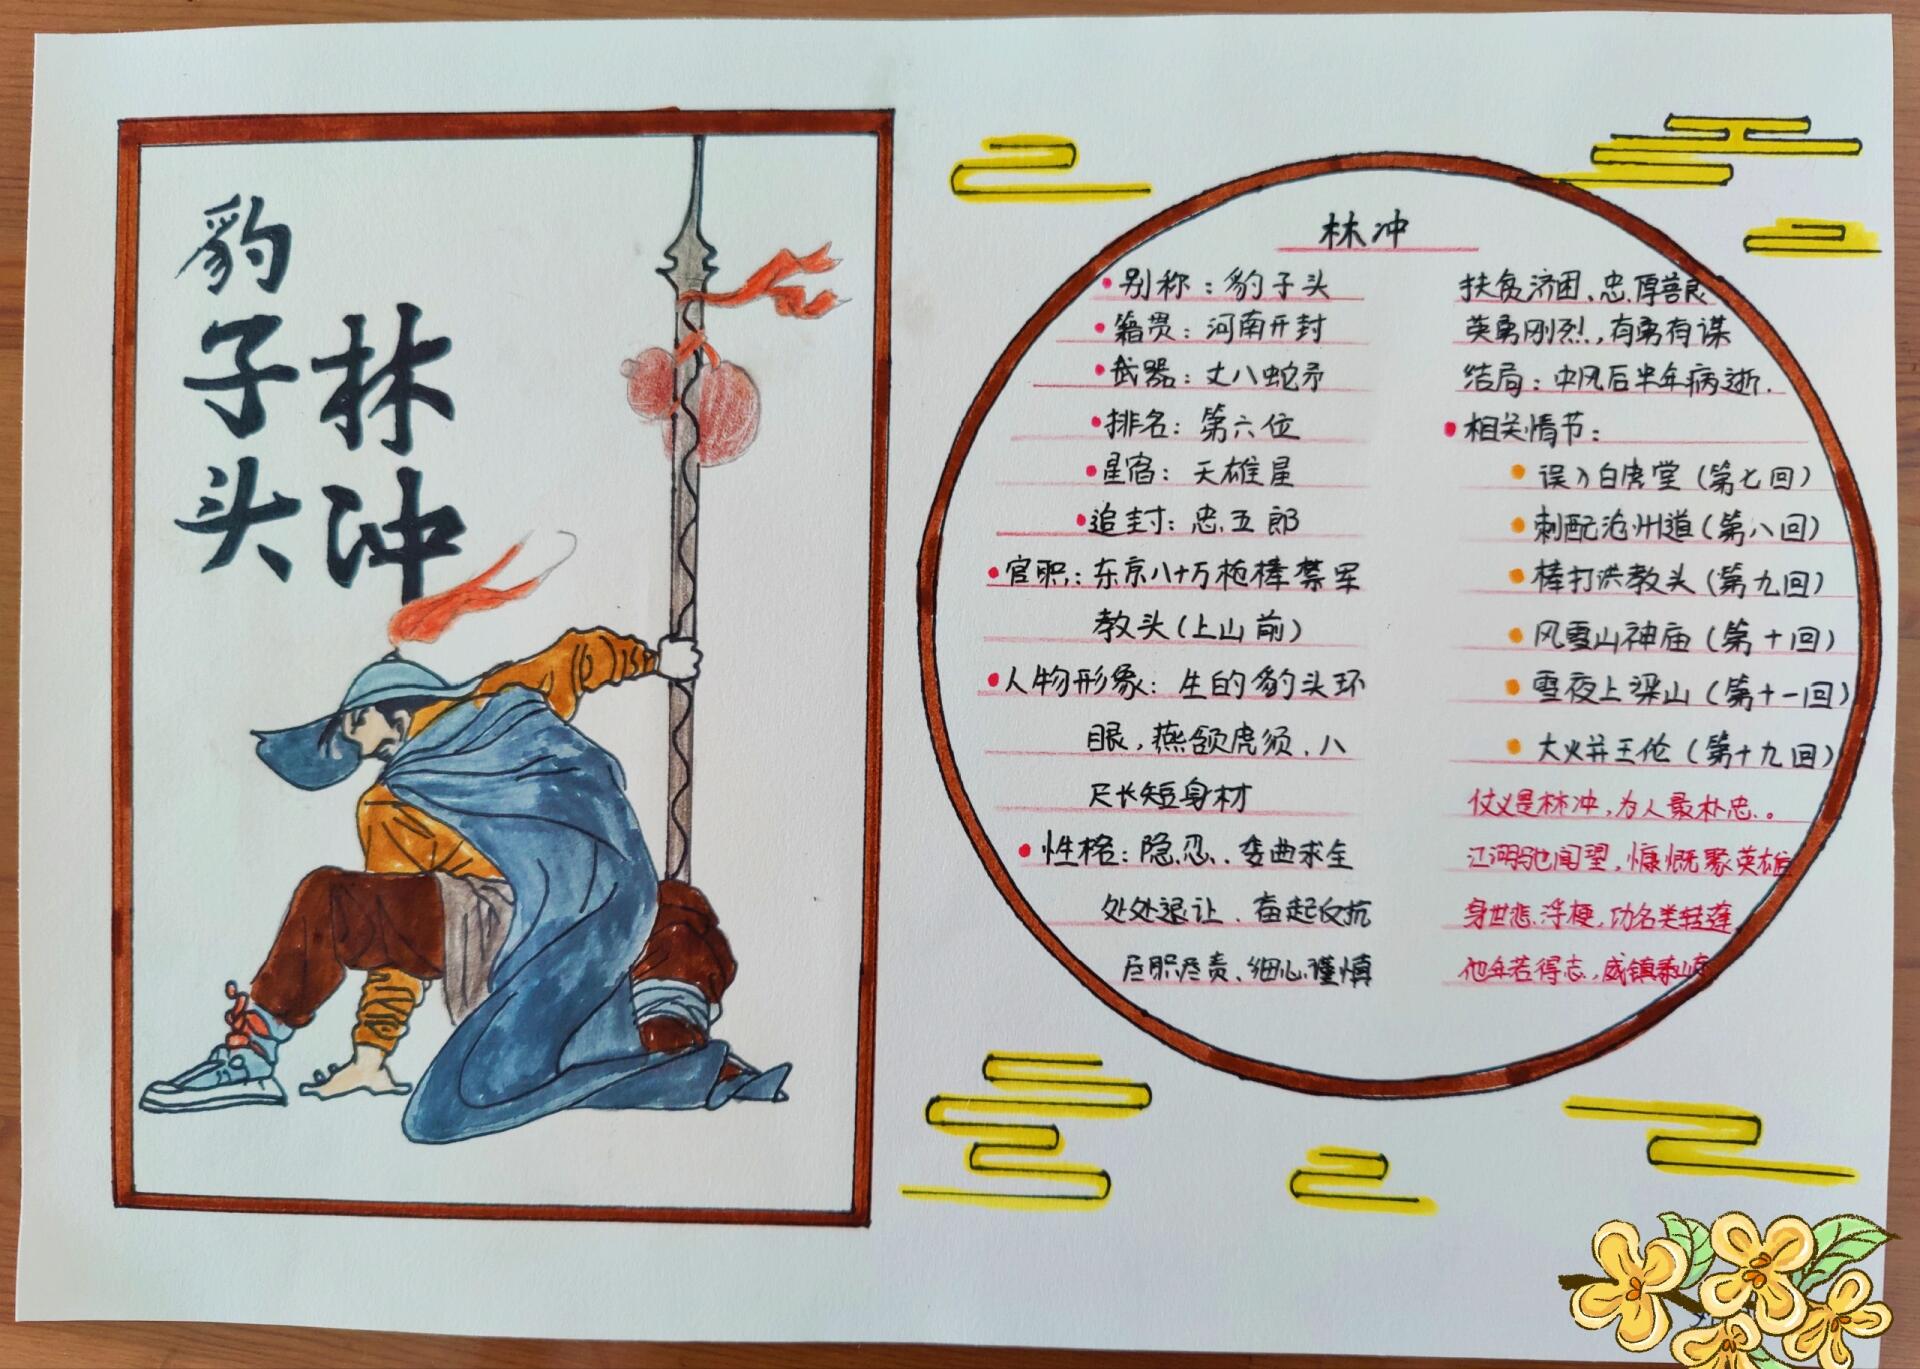 豹子头
林冲
林冲
别称：豹子头
籍贯：河南开封
武器：丈八蛇矛
排名：第六位
星宿：天雄星
追封：忠五郎
官职：东京八十万枪棒禁军
教头(上山前)
人物形象：生的豹头环
眼，燕颔虎须、八
尺长短身材
性格：隐忍、委曲求全
处处退让、奋起反抗
尽职尽责、细心谨慎
扶负济困、忠厚善良
英勇刚烈，有勇有谋
结局：中风后半年病逝.
相关情节：
误入白虎堂(第七回)
刺配沧州道(第八回)
棒打洪教头(第九回)
风雪山神庙(第十回)
雪夜上梁山(第十一回)
大火并王伦(第十九回)
仗义是林冲，为人最朴忠。
江湖驰闻望，慷慨聚英雄
身世悲浮梗，功名类转蓬
他年若得志，威镇泰山东